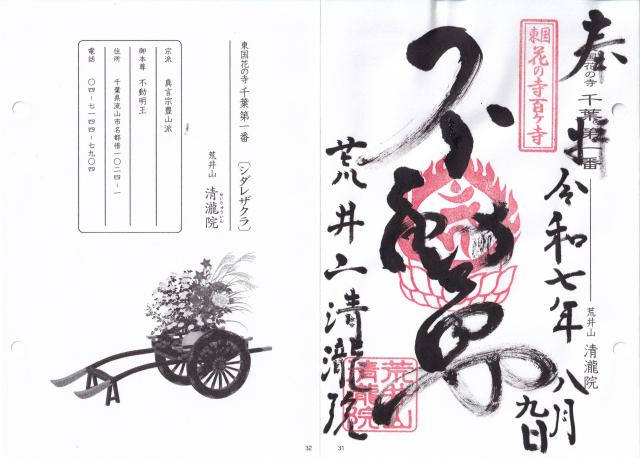 奉拝
東国花の寺 千葉第一番
荒井山 清瀧院
東国
花の寺百ヶ寺
令和七年八月九日
不動尊
荒井山清瀧院
荒井山
清瀧院
31
東国花の寺 千葉第一番 〔シダレザクラ〕
荒井山 清瀧院
せいりゅういん
宗派 真言宗豊山派
御本尊 不動明王
住所 千葉県流山市名都借一〇二四-一
電話 〇四-七一四四-七九〇四
32